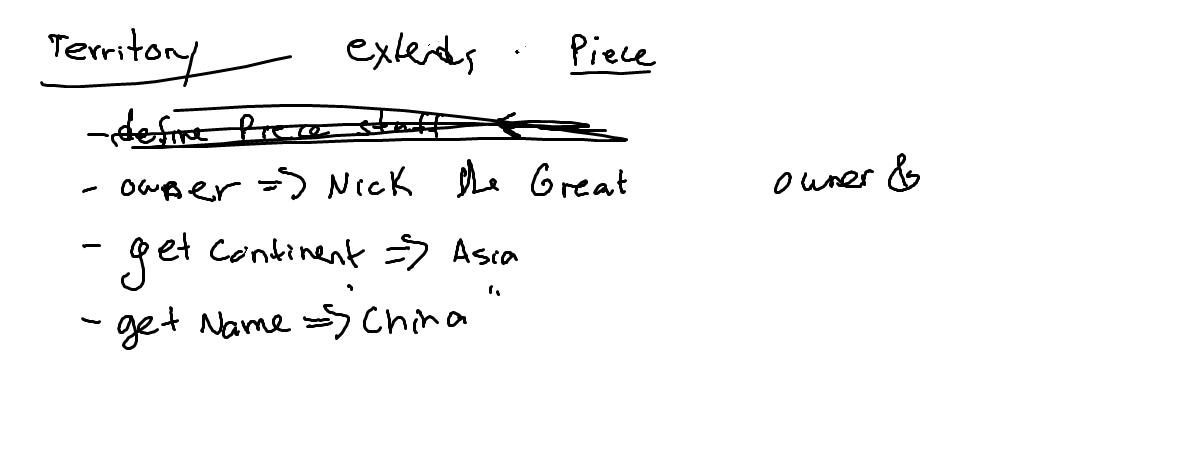 Territory extends Piece
- define Piece stuff
- owner => Nick the Great owner &
- get Continent => Asia
- get Name => "China"